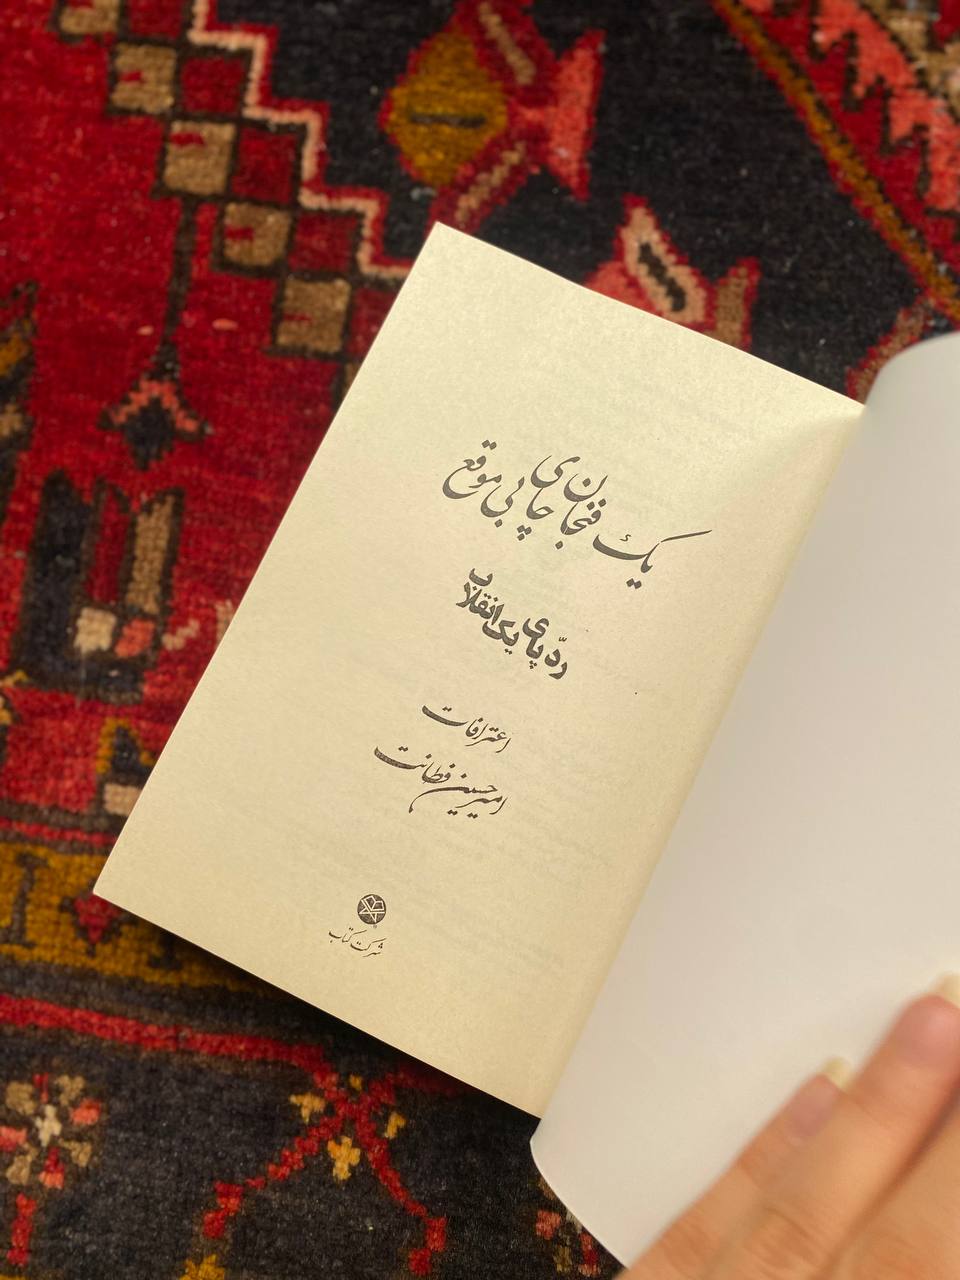 یک فنجان چای بی موقع
ردّ پای یک انقلاب
اعترافات
امیرحسین فطانت
شرکت کتاب